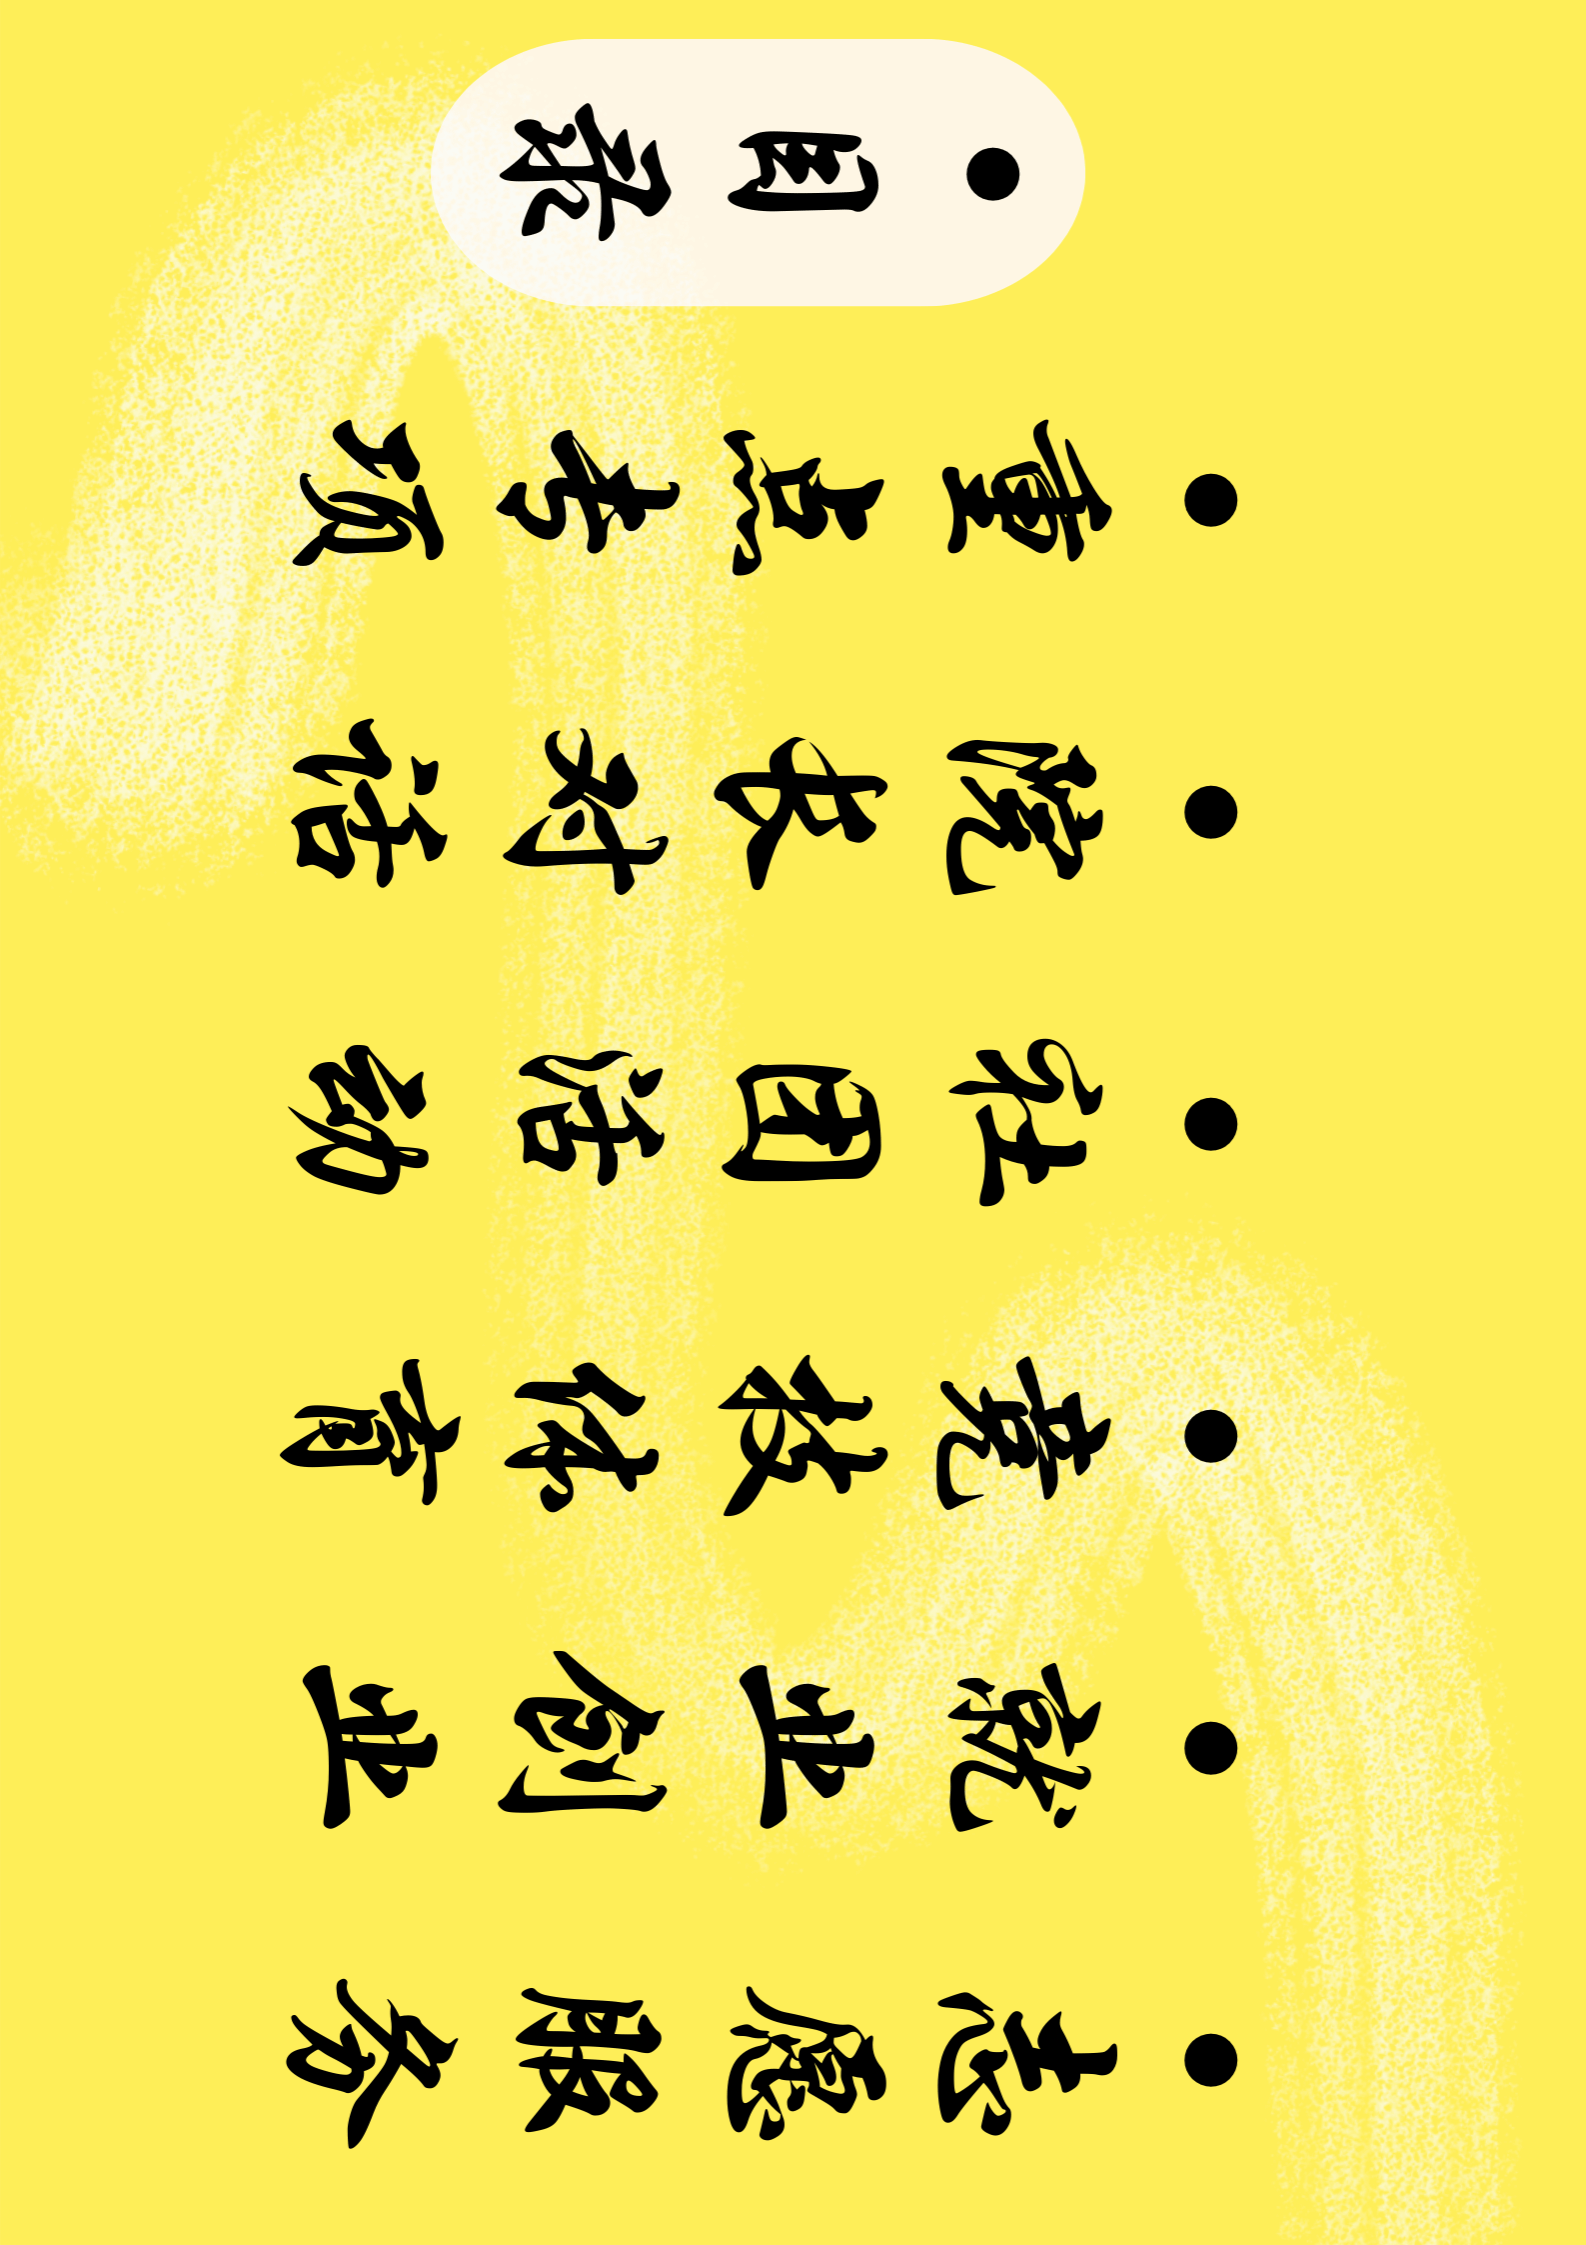 目录
重点专项
院长对话
社团活动
竞技体育
就业创业
志愿服务